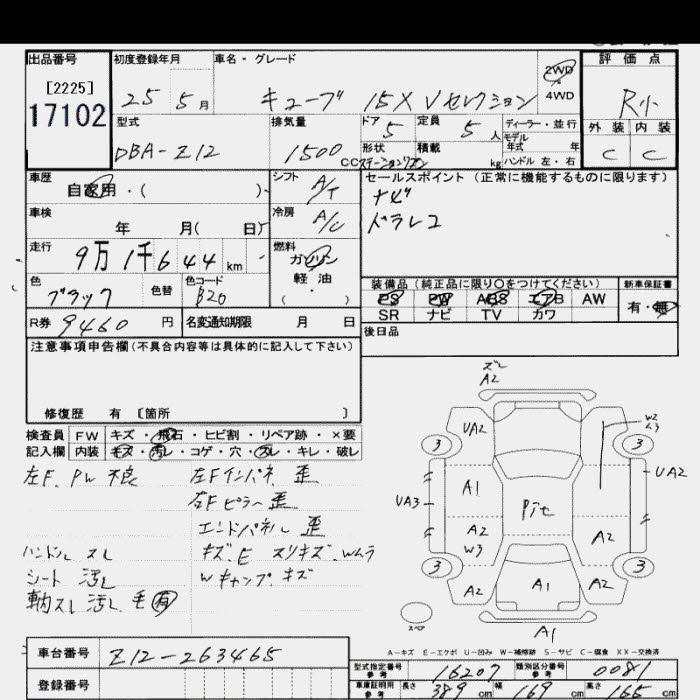 出品番号 初度登録年月 車名・グレード 評価点
[2225] 2WD
17102 25 5月 キューブ 15X Vセレクション 4WD R小
型式 排気量 ドア 定員 ディーラー・並行 外装 内装
DBA-Z12 1500 CC 5 5人 モデル年式 年 C C
形状 積載 kg ハンドル 左・右
ステーションワゴン
車歴 自家用・( ) シフト A/T セールスポイント (正常に機能するものに限ります)
車検 年 月( 日) 冷房 A/C ナビ
ドラレコ
走行 9万1千644km 燃料 ガソリン
軽油
( )
色 ブラック 色替 色コード B20 装備品 (純正品に限り○をつけてください) 新車保証書
PS PW ABS エアB AW 有・無
SR ナビ TV カワ
R券 9460円 名変通知期限 月 日 後日品
注意事項申告欄 (不具合内容等は具体的に記入して下さい)
修復歴 有 [箇所 ]
検査員 FW キズ・飛石・ヒビ割・リペア跡・×要
記入欄 内装 キズ・汚レ・コゲ・穴・スレ・キレ・破レ
左F.PW 不良 左Fインパネ 歪
右Fピラー 歪
エンドパネル 歪
ハンドル スレ キズ.E スリキズ.Wムラ
シート 汚レ Wキャップ.キズ
車内スレ汚レ 毛有
ズレ
A2
UA2 W2
ムラ
3 3
A1 UA2
UA3 Pit
A2 A2
W3
3 3
A2 A1 A2
スペア A1
A-キズ E-エクボ U-凹み W-補修跡 S-サビ C-腐食 XX-交換済
車台番号 Z12-263465
登録番号
型式指定番号 参考 16207 類別区分番号 参考 0081
車庫証明用 参考 長さ 389cm 幅 169cm 高さ 165cm